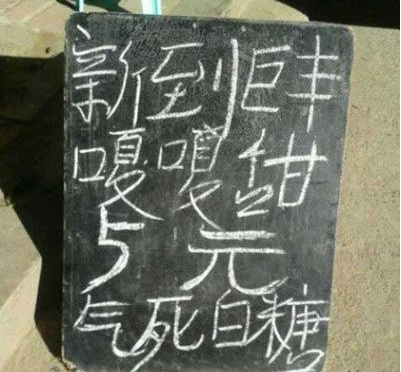 新到巨丰
嘎嘎甜
5元
气死白糖